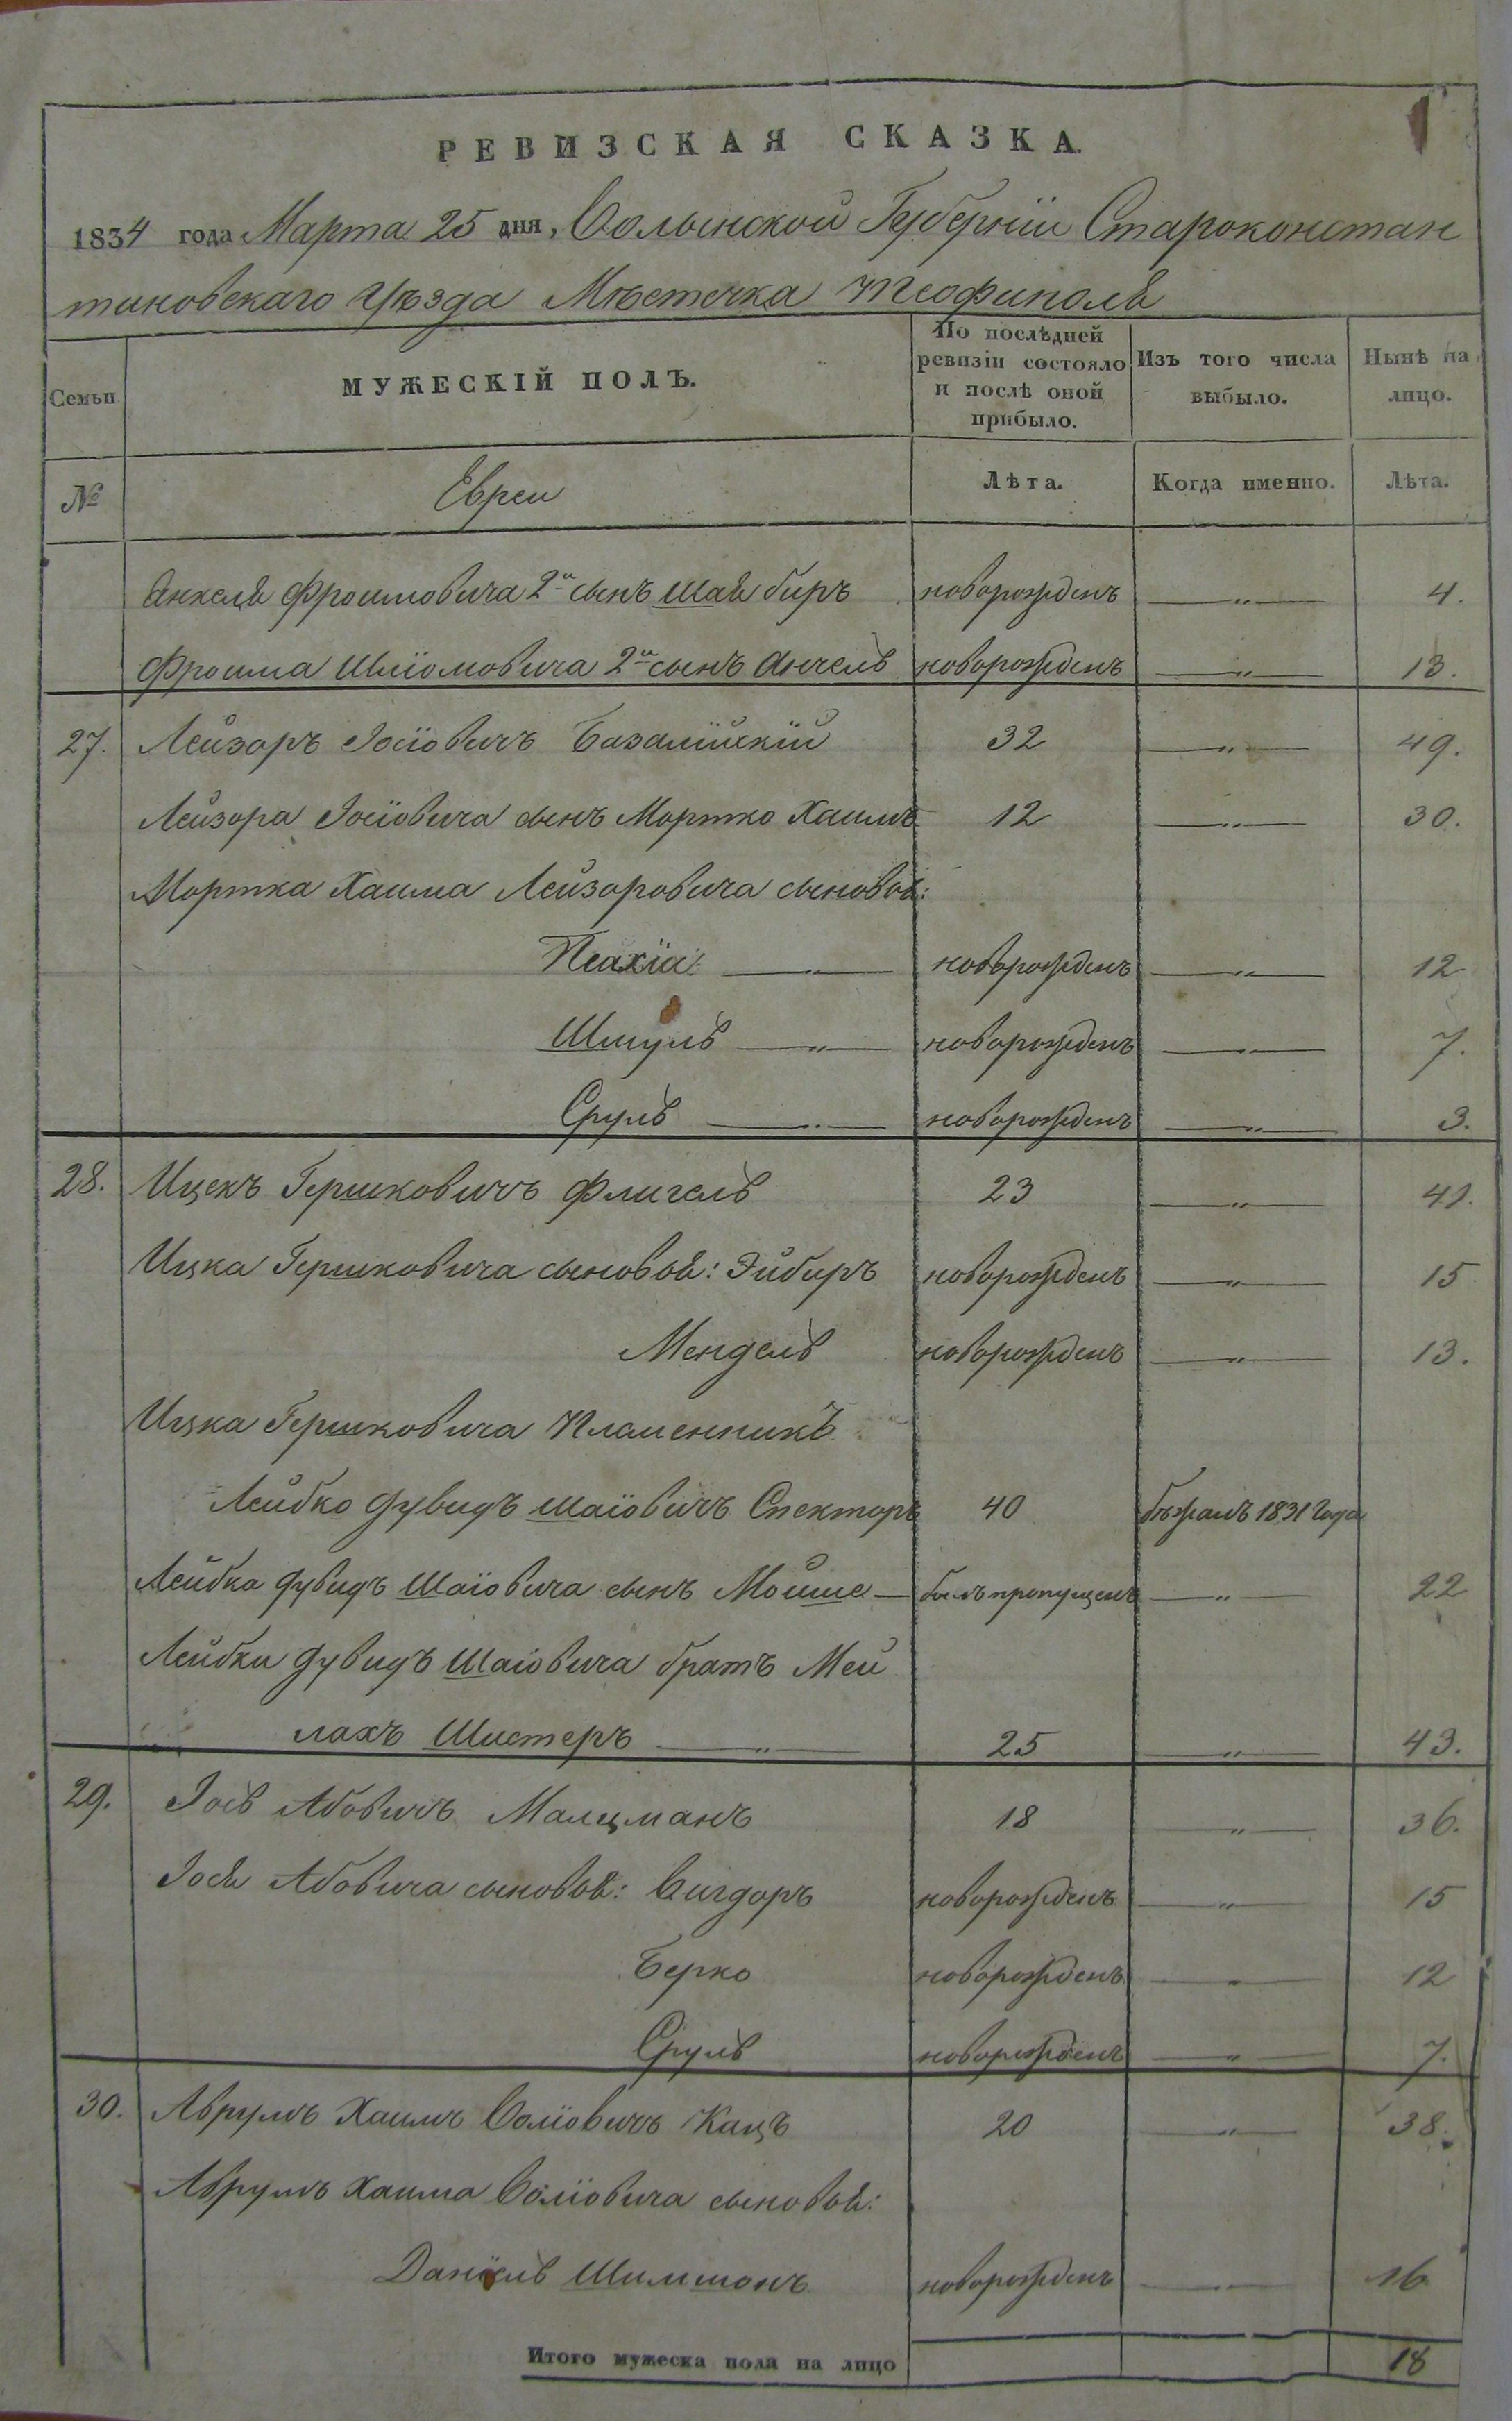 РЕВИЗСКАЯ СКАЗКА.
1834 года Марта 25 дня, Волынской Губерніи Староконстан
тиновскаго Уѣзда Мѣстечка Теофиполя
Семьи
МУЖЕСКІЙ ПОЛЪ.
По послѣдней ревизіи состояло и послѣ оной прибыло.
Изъ того числа выбыло.
Нынѣ на лицо.
№ Евреи Лѣта. Когда именно. Лѣта.
Анкеля Фроимовича 2й сынъ Шая биръ новорожденъ —„— 4.
Фроима Шліомовича 2й сынъ Анчель новорожденъ —„— 13.
27. Лейзоръ Іосіовичъ Базалійскій 32 —„— 49.
Лейзора Іосіовича сынъ Мортко Хаимъ 12 —„— 30.
Мортка Хаима Лейзоровича сыновья:
Псахіа —„— новорожденъ —„— 12
Шмуль —„— новорожденъ —„— 7.
Сруль —„— новорожденъ —„— 3.
28. Ицекъ Гершковичъ Флигель 23 —„— 41.
Ицка Гершковича сыновья: Эйбиръ новорожденъ —„— 15
Мендель новорожденъ —„— 13.
Ицка Гершковича Племенникъ
Лейбко Дувидъ Шаіовичъ Спекторъ 40 бѣжалъ 1831 года
Лейбка Дувидъ Шаіовича сынъ Мойше — былъ пропущенъ —„— 22
Лейбки Дувидъ Шаіовича братъ Мей
лахъ Шистеръ —„— 25 —„— 43.
29. Іось Абовичъ Малцманъ 18 —„— 36.
Іося Абовича сыновья: Вигдоръ новорожденъ —„— 15
Берко новорожденъ —„— 12
Сруль новорожденъ —„— 7.
30. Аврумъ Хаимъ Воліовичъ Кацъ 20 —„— 38.
Аврумъ Хаима Воліовича сыновья:
Даніель Шимшонъ новорожденъ —„— 16
Итого мужеска пола на лицо 18